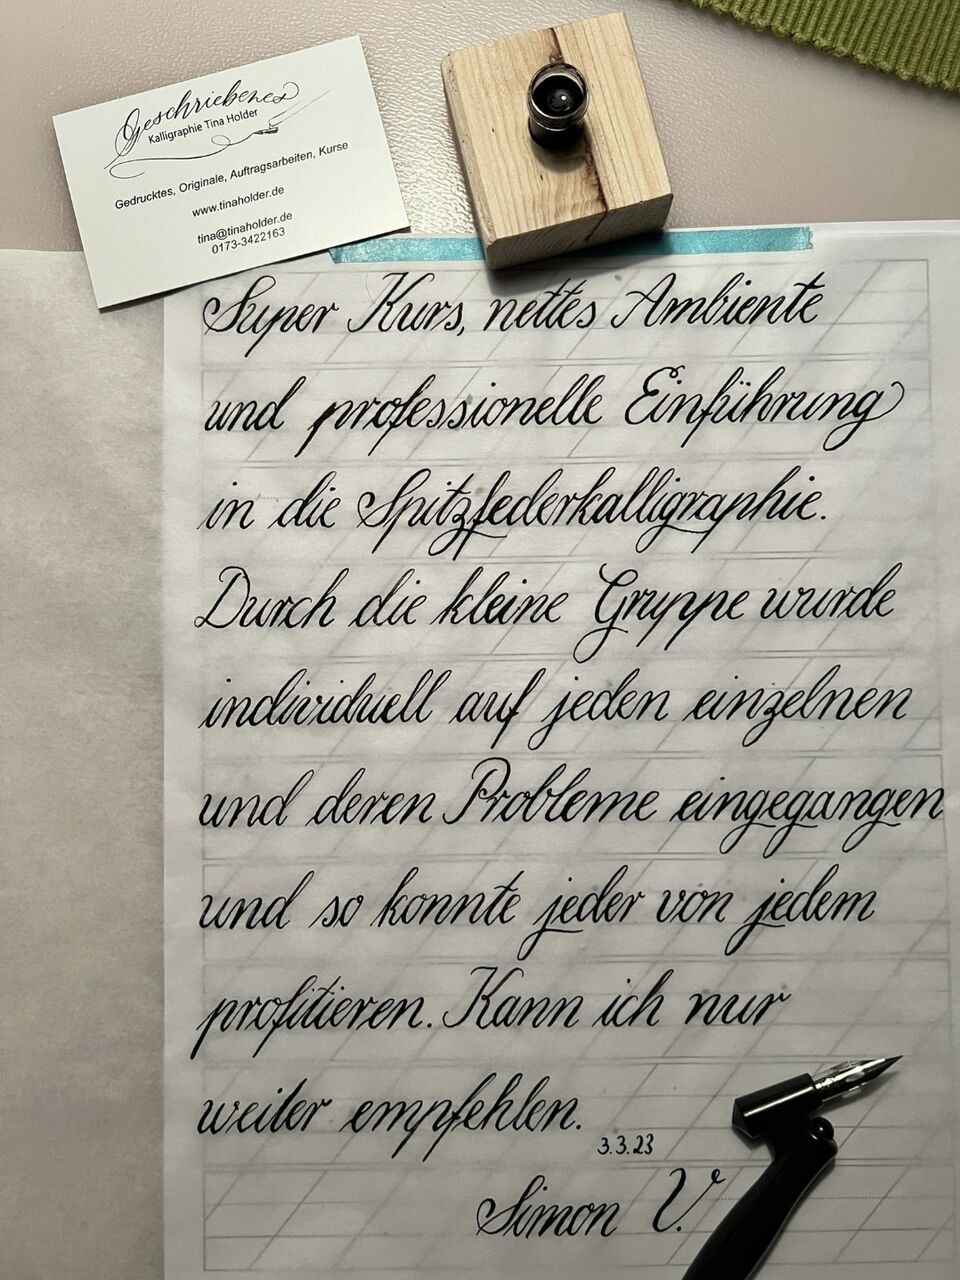 Geschriebenes
Kalligraphie Tina Holder
Gedrucktes, Originale, Auftragsarbeiten, Kurse
www.tinaholder.de
tina@tinaholder.de
0173-3422163
Super Kurs, nettes Ambiente
und professionelle Einführung
in die Spitzfederkalligraphie.
Durch die kleine Gruppe wurde
individuell auf jeden einzelnen
und deren Probleme eingegangen
und so konnte jeder von jedem
profitieren. Kann ich nur
weiter empfehlen.
3.3.23
Simon V.